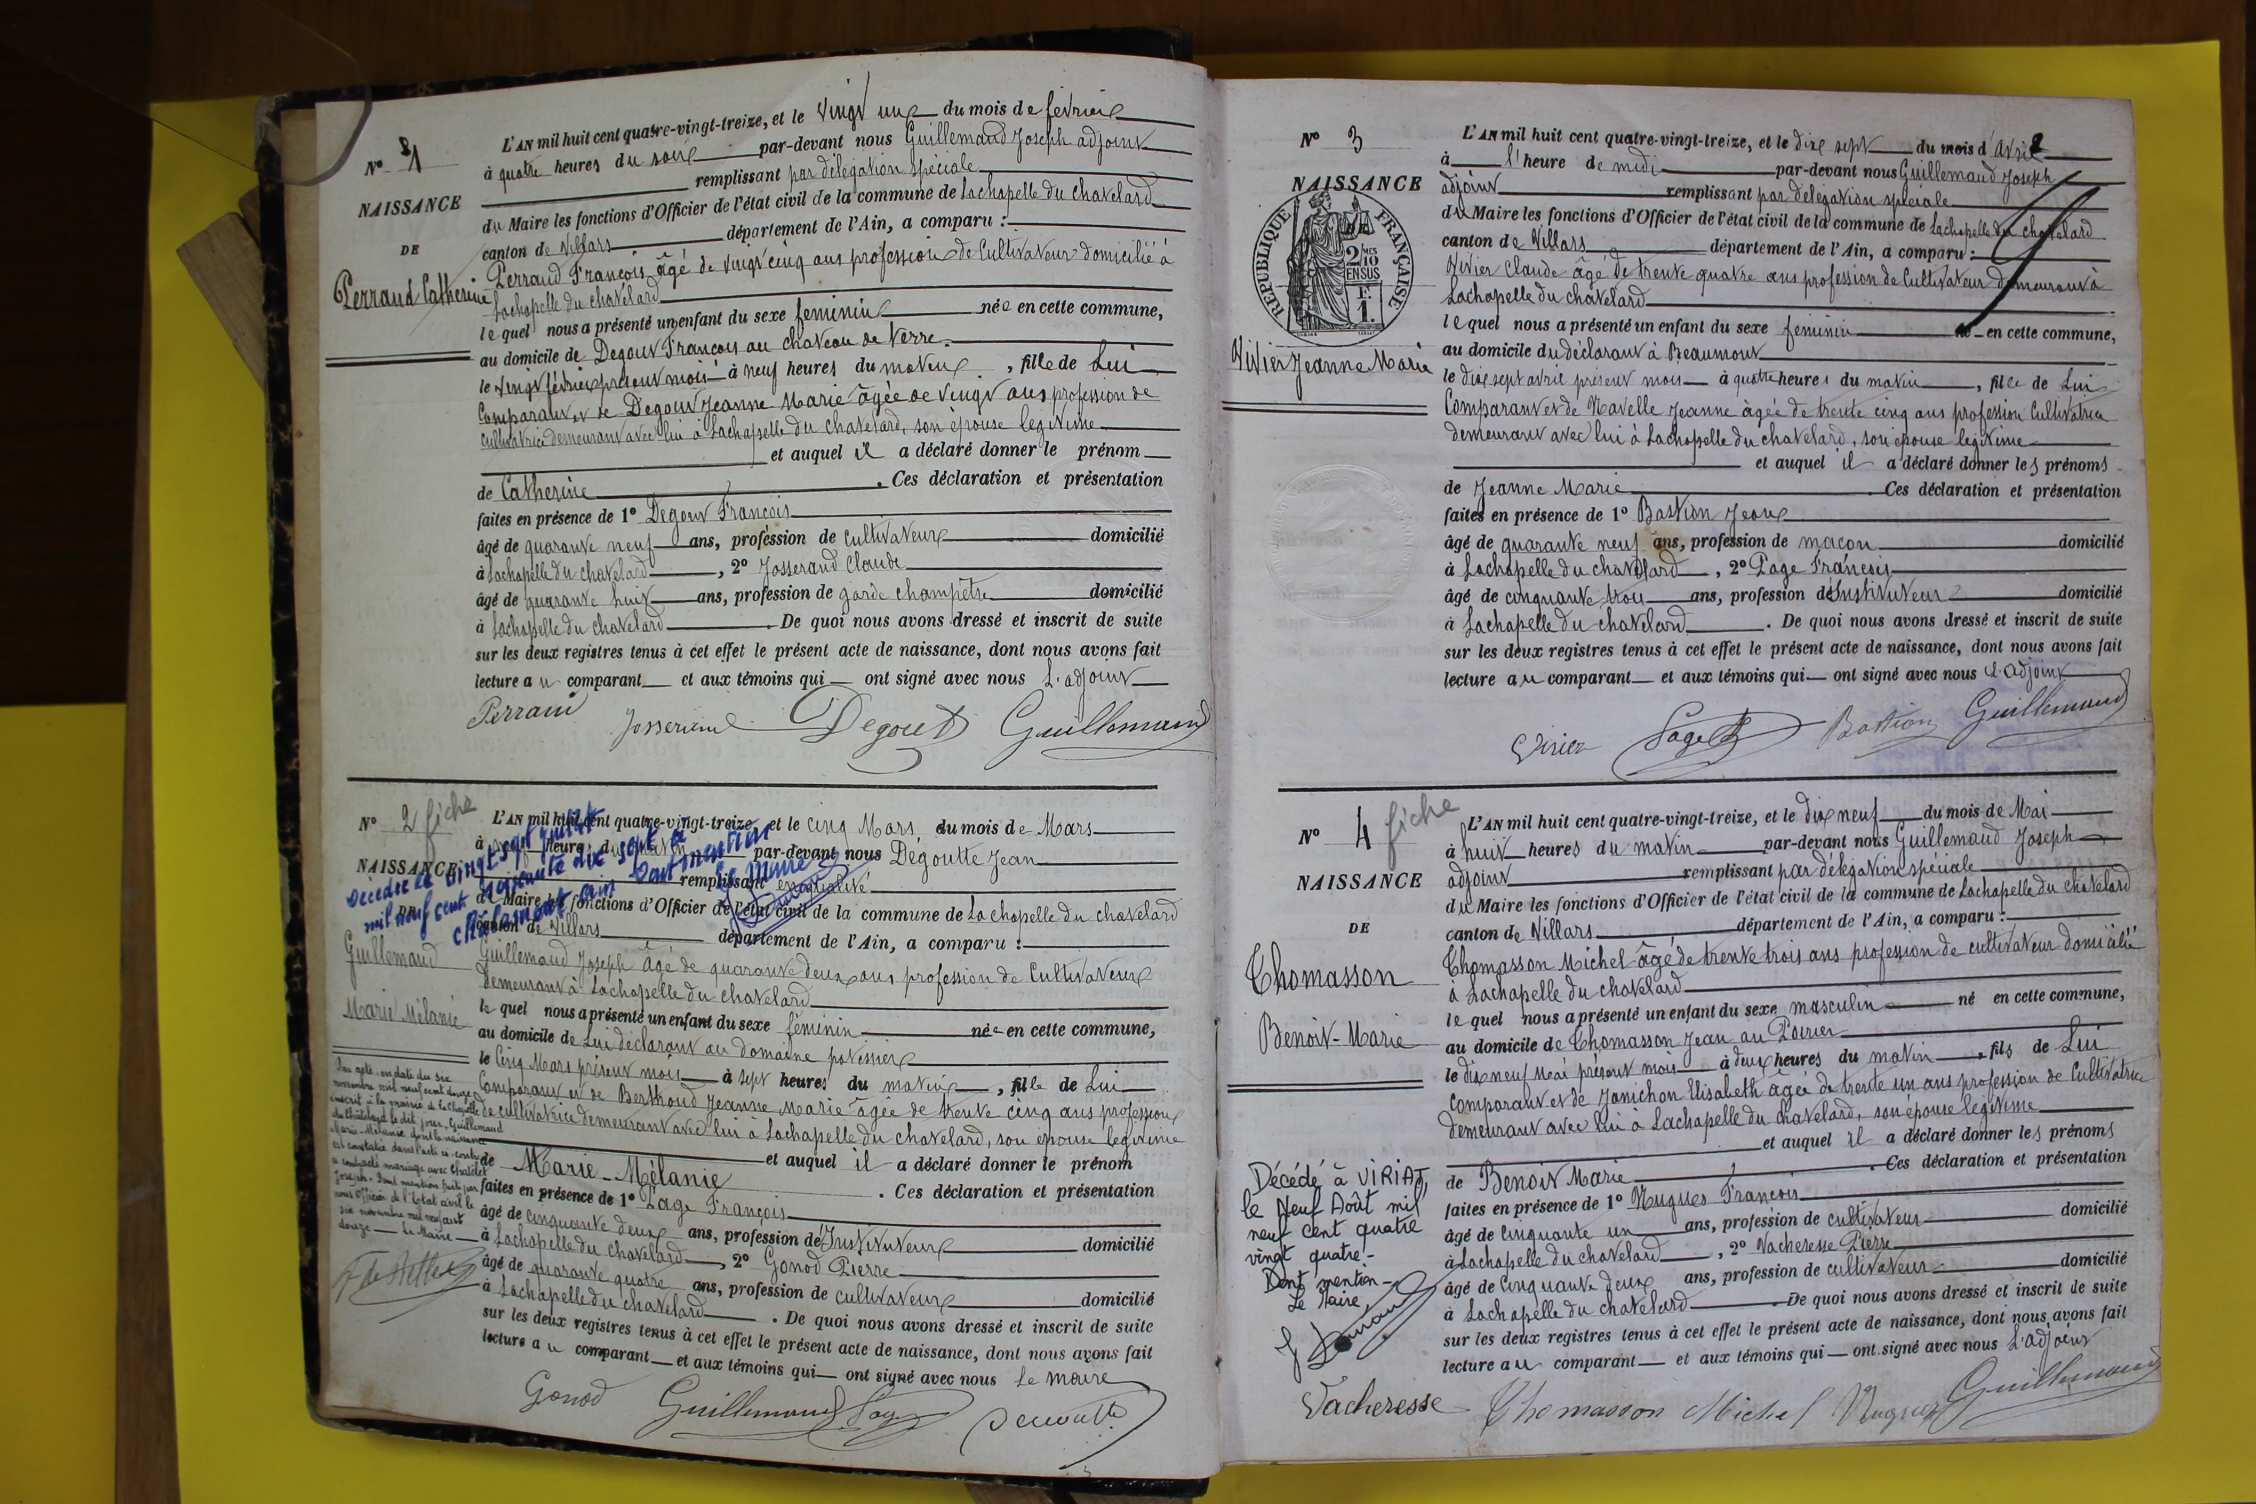 L'AN mil huit cent quatre-vingt-treize, et le vingt une du mois de février
N° 1
à quatre heures du soir par-devant nous Guillemaud Joseph adjoint
remplissant par délégation spéciale
NAISSANCE
du Maire les fonctions d'Officier de l'état civil de la commune de Lachapelle du chatelard
DE
canton de Villars département de l'Ain, a comparu :
Perraud Catherine
Perraud François âgé de vingt cinq ans profession de Cultivateur domicilié à
Lachapelle du chatelard
le quel nous a présenté un enfant du sexe feminin née en cette commune,
au domicile de Degout François au chateau de Verre.
le vingt février présent mois à neuf heures du matin, fille de Lui
Comparant et de Degout Jeanne Marie âgée de vingt ans profession de
cultivatrice demeurant avec lui à Lachapelle du chatelard, son épouse legitime
et auquel il a déclaré donner le prénom
de Catherine. Ces déclaration et présentation
faites en présence de 1° Degout François
âgé de quarante neuf ans, profession de cultivateur domicilié
à Lachapelle du chatelard, 2° Josserand Claude
âgé de quarante huit ans, profession de garde champêtre domicilié
à Lachapelle du chatelard. De quoi nous avons dressé et inscrit de suite
sur les deux registres tenus à cet effet le présent acte de naissance, dont nous avons fait
lecture au comparant et aux témoins qui ont signé avec nous L'adjoint
Perraud Josserand Degout Guillemaud
N° 2 fiche
L'AN mil huit cent quatre-vingt-treize, et le cinq Mars du mois de Mars
à heures du matin par-devant nous Dégoutte Jean
NAISSANCE
remplissant en qualité
DE
de Maire les fonctions d'Officier de l'état civil de la commune de La chapelle du chatelard
canton de Villars département de l'Ain, a comparu :
Décédée le vingt sept juillet
mil neuf cent soixante dix sept à
Châlamont dont mention
Le Maire
Guillemaud
Marie Mélanie
Guillemaud Joseph âgé de quarante deux ans profession de Cultivateur
demeurant à Lachapelle du chatelard
le quel nous a présenté un enfant du sexe féminin née en cette commune,
au domicile de Lui déclarant au domaine
le cinq Mars présent mois à sept heures du matin, fille de Lui
Comparant et de Berthoud Jeanne Marie âgée de trente cinq ans profession
de cultivatrice demeurant avec lui à Lachapelle du chatelard, son épouse legitime
et auquel il a déclaré donner le prénom
de Marie-Mélanie. Ces déclaration et présentation
faites en présence de 1° Page François
âgé de cinquante deux ans, profession d'Instituteur domicilié
à Lachapelle du chatelard, 2° Gonod Pierre
âgé de quarante quatre ans, profession de cultivateur domicilié
à Lachapelle du chatelard. De quoi nous avons dressé et inscrit de suite
sur les deux registres tenus à cet effet le présent acte de naissance, dont nous avons fait
lecture au comparant et aux témoins qui ont signé avec nous Le maire
Par acte en date du six
novembre mil neuf cent douze
inscrit à la mairie de La Chapelle
du Châtelard le dit jour, Guillemaud
Marie-Mélanie dont la naissance
est constatée dans l'acte ci-contre
a contracté mariage avec Chatelet
Joseph. Dont mention faite par
nous Officier de l'Etat civil le
six novembre mil neuf cent
douze Le Maire
Gonod Guillemaud Page
N° 3
L'AN mil huit cent quatre-vingt-treize, et le dix sept du mois d'Avril
à l'heure de midi par-devant nous Guillemaud Joseph
NAISSANCE
adjoint remplissant par délégation spéciale
du Maire les fonctions d'Officier de l'état civil de la commune de Lachapelle du chatelard
canton de Villars département de l'Ain, a comparu :
RÉPUBLIQUE FRANÇAISE
2/10 EN SUS
F. 1.
Vivier Jeanne Marie
Vivier Claude âgé de trente quatre ans profession de Cultivateur demeurant à
Lachapelle du chatelard
le quel nous a présenté un enfant du sexe feminin né en cette commune,
au domicile du déclarant à Beaumont
le dix sept avril présent mois à quatre heures du matin, fille de Lui
Comparant et de Navelle Jeanne âgée de trente cinq ans profession Cultivatrice
demeurant avec lui à Lachapelle du chatelard, son épouse legitime
et auquel il a déclaré donner les prénoms
de Jeanne Marie. Ces déclaration et présentation
faites en présence de 1° Bastion Jean
âgé de quarante neuf ans, profession de maçon domicilié
à Lachapelle du chatelard, 2° Page François
âgé de cinquante trois ans, profession d'Instituteur domicilié
à Lachapelle du châtelard. De quoi nous avons dressé et inscrit de suite
sur les deux registres tenus à cet effet le présent acte de naissance, dont nous avons fait
lecture au comparant et aux témoins qui ont signé avec nous L'Adjoint
Vivier Page Bastion Guillemaud
N° 4 fiche
L'AN mil huit cent quatre-vingt-treize, et le dix neuf du mois de Mai
à huit heures du matin par-devant nous Guillemaud Joseph
NAISSANCE
adjoint remplissant par délégation spéciale
du Maire les fonctions d'Officier de l'état civil de la commune de Lachapelle du chatelard
DE
canton de Villars département de l'Ain, a comparu :
Thomasson
Benoit-Marie
Thomasson Michel âgé de trente trois ans profession de cultivateur domicilié
à Lachapelle du chatelard
le quel nous a présenté un enfant du sexe masculin né en cette commune,
au domicile de Thomasson Jean au Poirier
le dix neuf Mai présent mois à deux heures du matin, fils de Lui
comparant et de Janichon Elisabeth âgée de trente un ans profession de Cultivatrice
demeurant avec lui à Lachapelle du chatelard, son épouse legitime
et auquel il a déclaré donner les prénoms
de Benoit Marie. Ces déclaration et présentation
faites en présence de 1° Nugues François
âgé de cinquante un ans, profession de cultivateur domicilié
à Lachapelle du chatelard, 2° Vacheresse Pierre
âgé de cinquante deux ans, profession de cultivateur domicilié
à Lachapelle du chatelard. De quoi nous avons dressé et inscrit de suite
sur les deux registres tenus à cet effet le présent acte de naissance, dont nous avons fait
lecture au comparant et aux témoins qui ont signé avec nous L'adjoint
Décédé à VIRIAT,
le Neuf Août mil
neuf cent quatre
vingt quatre.-
Dont mention-
Le Maire,
Vacheresse Thomasson Michel Nugues Guillemaud